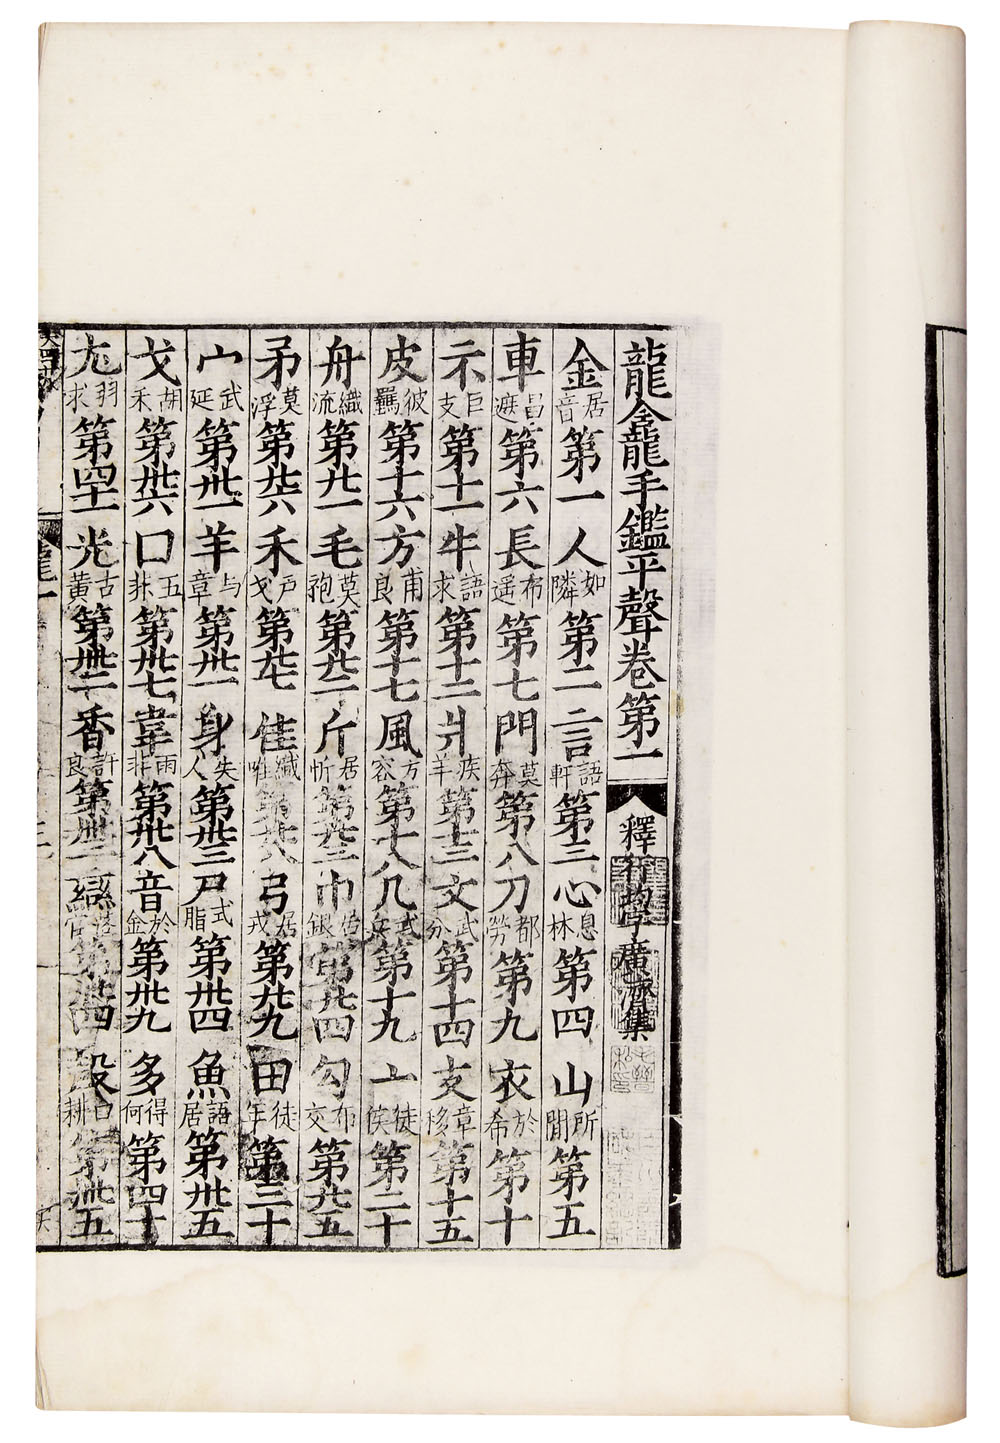 龍龕手鑑平聲卷第一 釋行均字廣濟集
金居音第一 人如隣第二 言語軒第三 心息林第四 山所閒第五
車昌遮第六 長布遥第七 門莫奔第八 刀都勞第九 衣於希第十
示巨支第十一 牛語求第十二 爿疾羊第十三 文武分第十四 支章移第十五
皮彼羈第十六 方甫良第十七 風方容第十八 几第十九 亠徒侯第二十
舟織流第廿一 毛莫袍第廿二 斤居忻第廿三 巾居銀第廿四 勹布交第廿五
矛莫浮第廿六 禾戸戈第廿七 隹纎唯第廿八 弓居戎第廿九 田徒年第三十
宀武延第卅一 羊与章第卅二 身失人第卅三 尸式脂第卅四 魚語居第卅五
戈胡禾第卅六 口五非第卅七 韋雨非第卅八 音於金第卅九 多得何第四十
尢羽求第四十一 光古黄第卌二 香許良第卌三 䜌落官第卌四 殸口耕第卌五
龍一